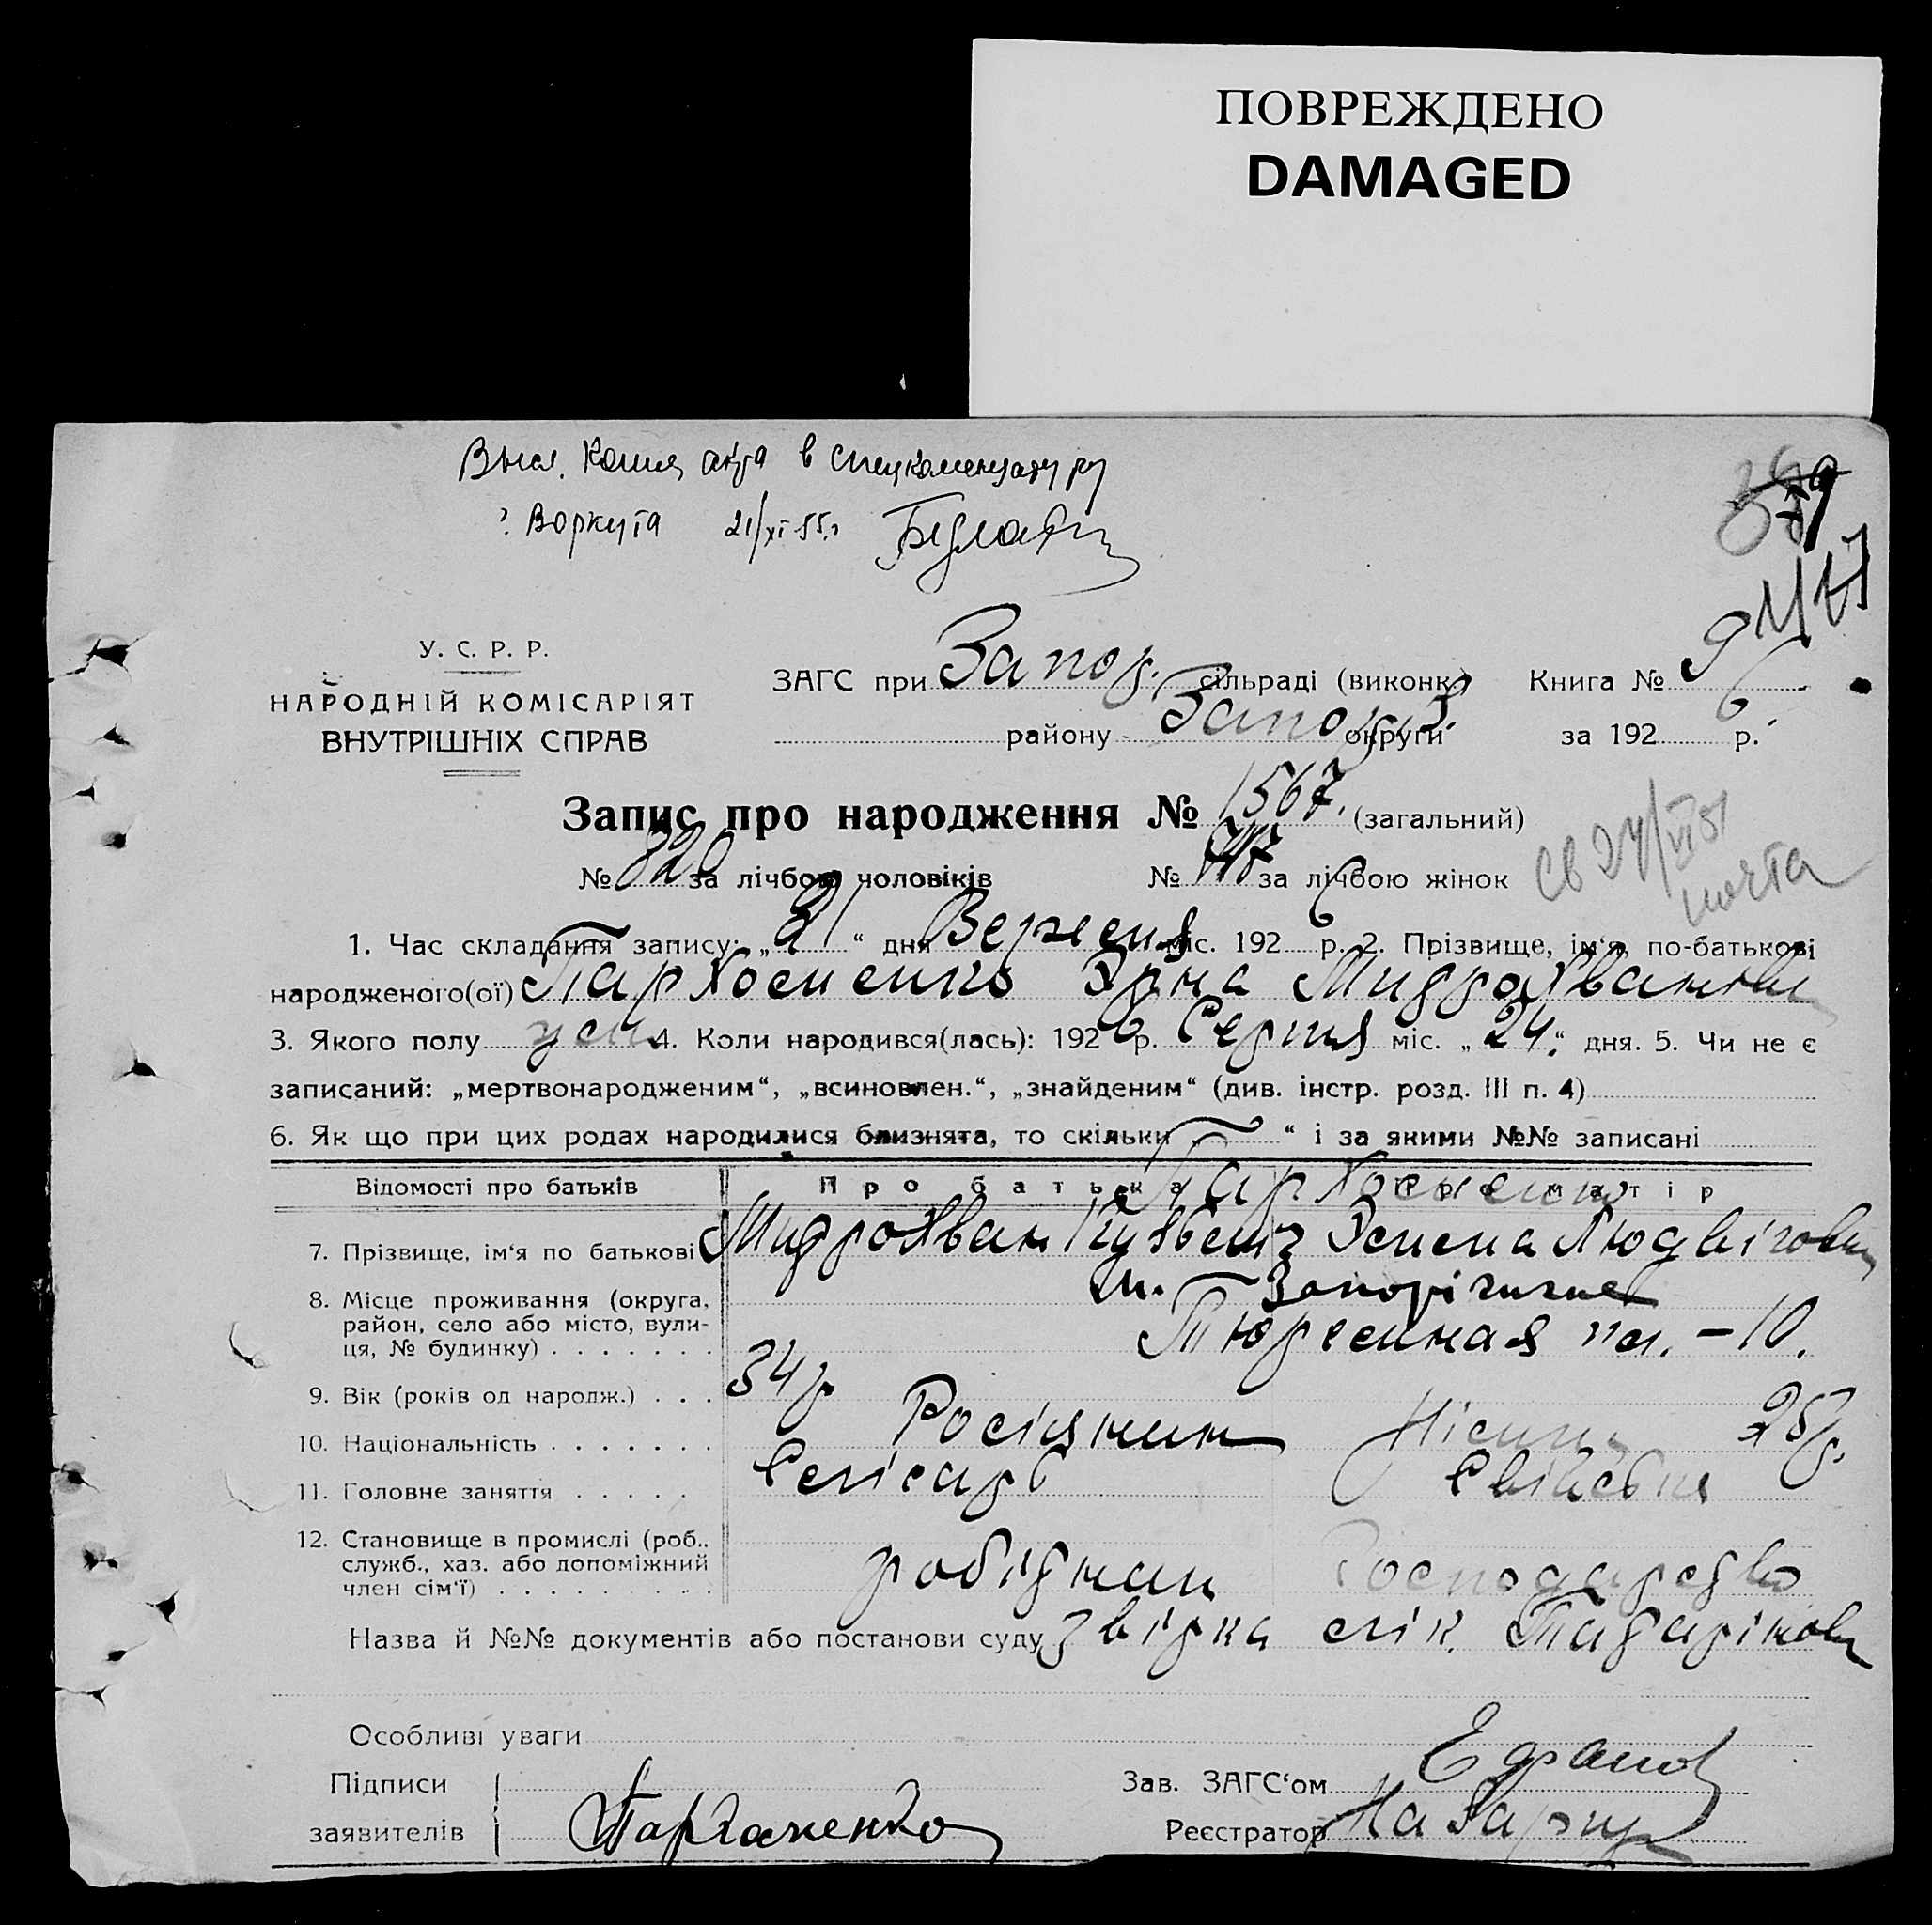 ПОВРЕЖДЕНО
DAMAGED
Высл. копия акта в спецкомендатуру
г. Воркута 21/XI-55 г.
У. С. Р. Р.
НАРОДНІЙ КОМІСАРІЯТ
ВНУТРІШНІХ СПРАВ
ЗАГС при Запор. сільраді (виконк.) Книга № 9
району Запор. округи за 1926 р.
Запис про народження № 1567. (загальний)
№ 820 за лічбою чоловіків № 747 за лічбою жінок
св 24/VI 51
почта
1. Час складання запису: „21“ дня Вересня міс. 1926 р. 2. Прізвище, ім‘я, по-батькові
народженого(ої) Пархоменко Эрна Митрофановна
3. Якого полу жен 4. Коли народився(лась): 1926 р. Серпня міс. „24.“ дня. 5. Чи не є
записаний: „мертвонародженим“, „всиновлен.“, „знайденим“ (див. інстр. розд. III п. 4)
6. Як що при цих родах народилися близнята, то скільки „ “ і за якими №№ записані
Відомості про батьків Про батька Про матір
Пархоменко
7. Прізвище, ім‘я по батькові Митрофан Кузьмич Эмма Людвіговна
8. Місце проживання (округа, район, село або місто, вулиця, № будинку) м. Запоріжжє
Тюремная пл. – 10.
9. Вік (років од народж.) 34 р 25 р.
10. Національність Росіянин Німкиня
11. Головне заняття Слісарь Хатнє
12. Становище в промислі (роб., служб., хаз. або допоміжний член сім‘ї) робітник господарство
Назва й №№ документів або постанови суду Звірка лік.
Особливі уваги
Підписи
заявителів Пархоменко
Зав. ЗАГС‘ом
Реєстратор